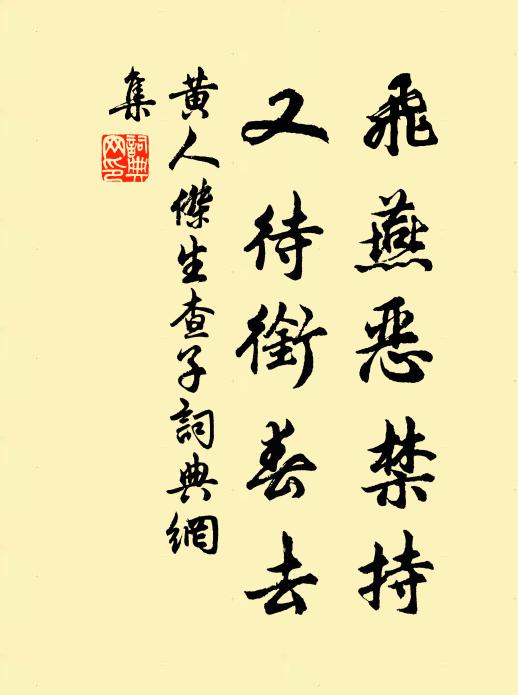 飛燕惡禁持
又待銜春去
黄人傑生查子詞典網
集
詞典網印